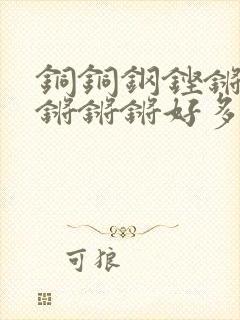 銅銅鋼鏗鏘
鏘鏘鏘好多
可狼